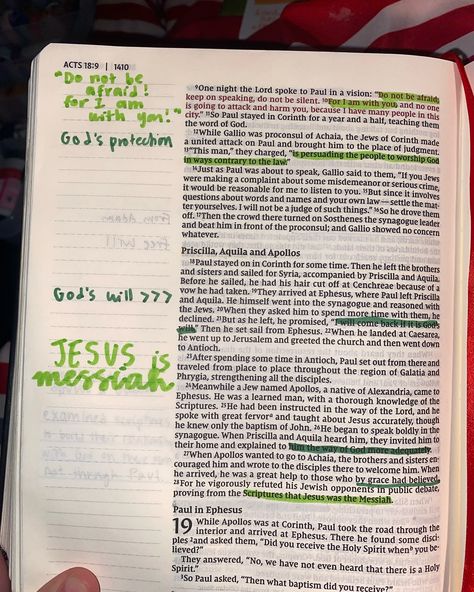 ACTS 18:9 | 1410
"Do not be
afraid!
for I am
with you!"
God's protection
God's will >>>
JESUS is
messiah
9One night the Lord spoke to Paul in a vision: "Do not be afraid,
keep on speaking, do not be silent. 10For I am with you, and no one
is going to attack and harm you, because I have many people in this
city." 11So Paul stayed in Corinth for a year and a half, teaching them
the word of God.
12While Gallio was proconsul of Achaia, the Jews of Corinth made
a united attack on Paul and brought him to the place of judgment.
13"This man," they charged, "is persuading the people to worship God
in ways contrary to the law."
14Just as Paul was about to speak, Gallio said to them, "If you Jews
were making a complaint about some misdemeanor or serious crime,
it would be reasonable for me to listen to you. 15But since it involves
questions about words and names and your own law—settle the mat-
ter yourselves. I will not be a judge of such things." 16So he drove them
off. 17Then the crowd there turned on Sosthenes the synagogue leader
and beat him in front of the proconsul; and Gallio showed no concern
whatever.
Priscilla, Aquila and Apollos
18Paul stayed on in Corinth for some time. Then he left the brothers
and sisters and sailed for Syria, accompanied by Priscilla and Aquila.
Before he sailed, he had his hair cut off at Cenchreae because of a
vow he had taken. 19They arrived at Ephesus, where Paul left Priscilla
and Aquila. He himself went into the synagogue and reasoned with
the Jews. 20When they asked him to spend more time with them, he
declined. 21But as he left, he promised, "I will come back if it is God's
will." Then he set sail from Ephesus. 22When he landed at Caesarea,
he went up to Jerusalem and greeted the church and then went down
to Antioch.
23After spending some time in Antioch, Paul set out from there and
traveled from place to place throughout the region of Galatia and
Phrygia, strengthening all the disciples.
24Meanwhile a Jew named Apollos, a native of Alexandria, came to
Ephesus. He was a learned man, with a thorough knowledge of the
Scriptures. 25He had been instructed in the way of the Lord, and he
spoke with great fervor and taught about Jesus accurately, though
he knew only the baptism of John. 26He began to speak boldly in the
synagogue. When Priscilla and Aquila heard him, they invited him to
their home and explained to him the way of God more adequately.
27When Apollos wanted to go to Achaia, the brothers and sisters en-
couraged him and wrote to the disciples there to welcome him. When
he arrived, he was a great help to those who by grace had believed.
28For he vigorously refuted his Jewish opponents in public debate,
proving from the Scriptures that Jesus was the Messiah.
Paul in Ephesus
19 While Apollos was at Corinth, Paul took the road through the
interior and arrived at Ephesus. There he found some disci-
ples 2and asked them, "Did you receive the Holy Spirit when you be-
lieved?"
They answered, "No, we have not even heard that there is a Holy
Spirit."
3So Paul asked, "Then what baptism did you receive?"